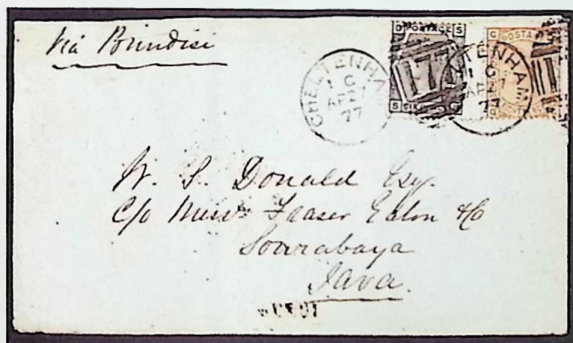 Via Brindisi
CHELTENHAM
1 C
AP 21
77
177
POSTAGE
CHELTENHAM
1 C
AP 21
77
W. S. Donald Esq.
C/o Messrs Fraser Eaton & Co
Sourabaya
Java.